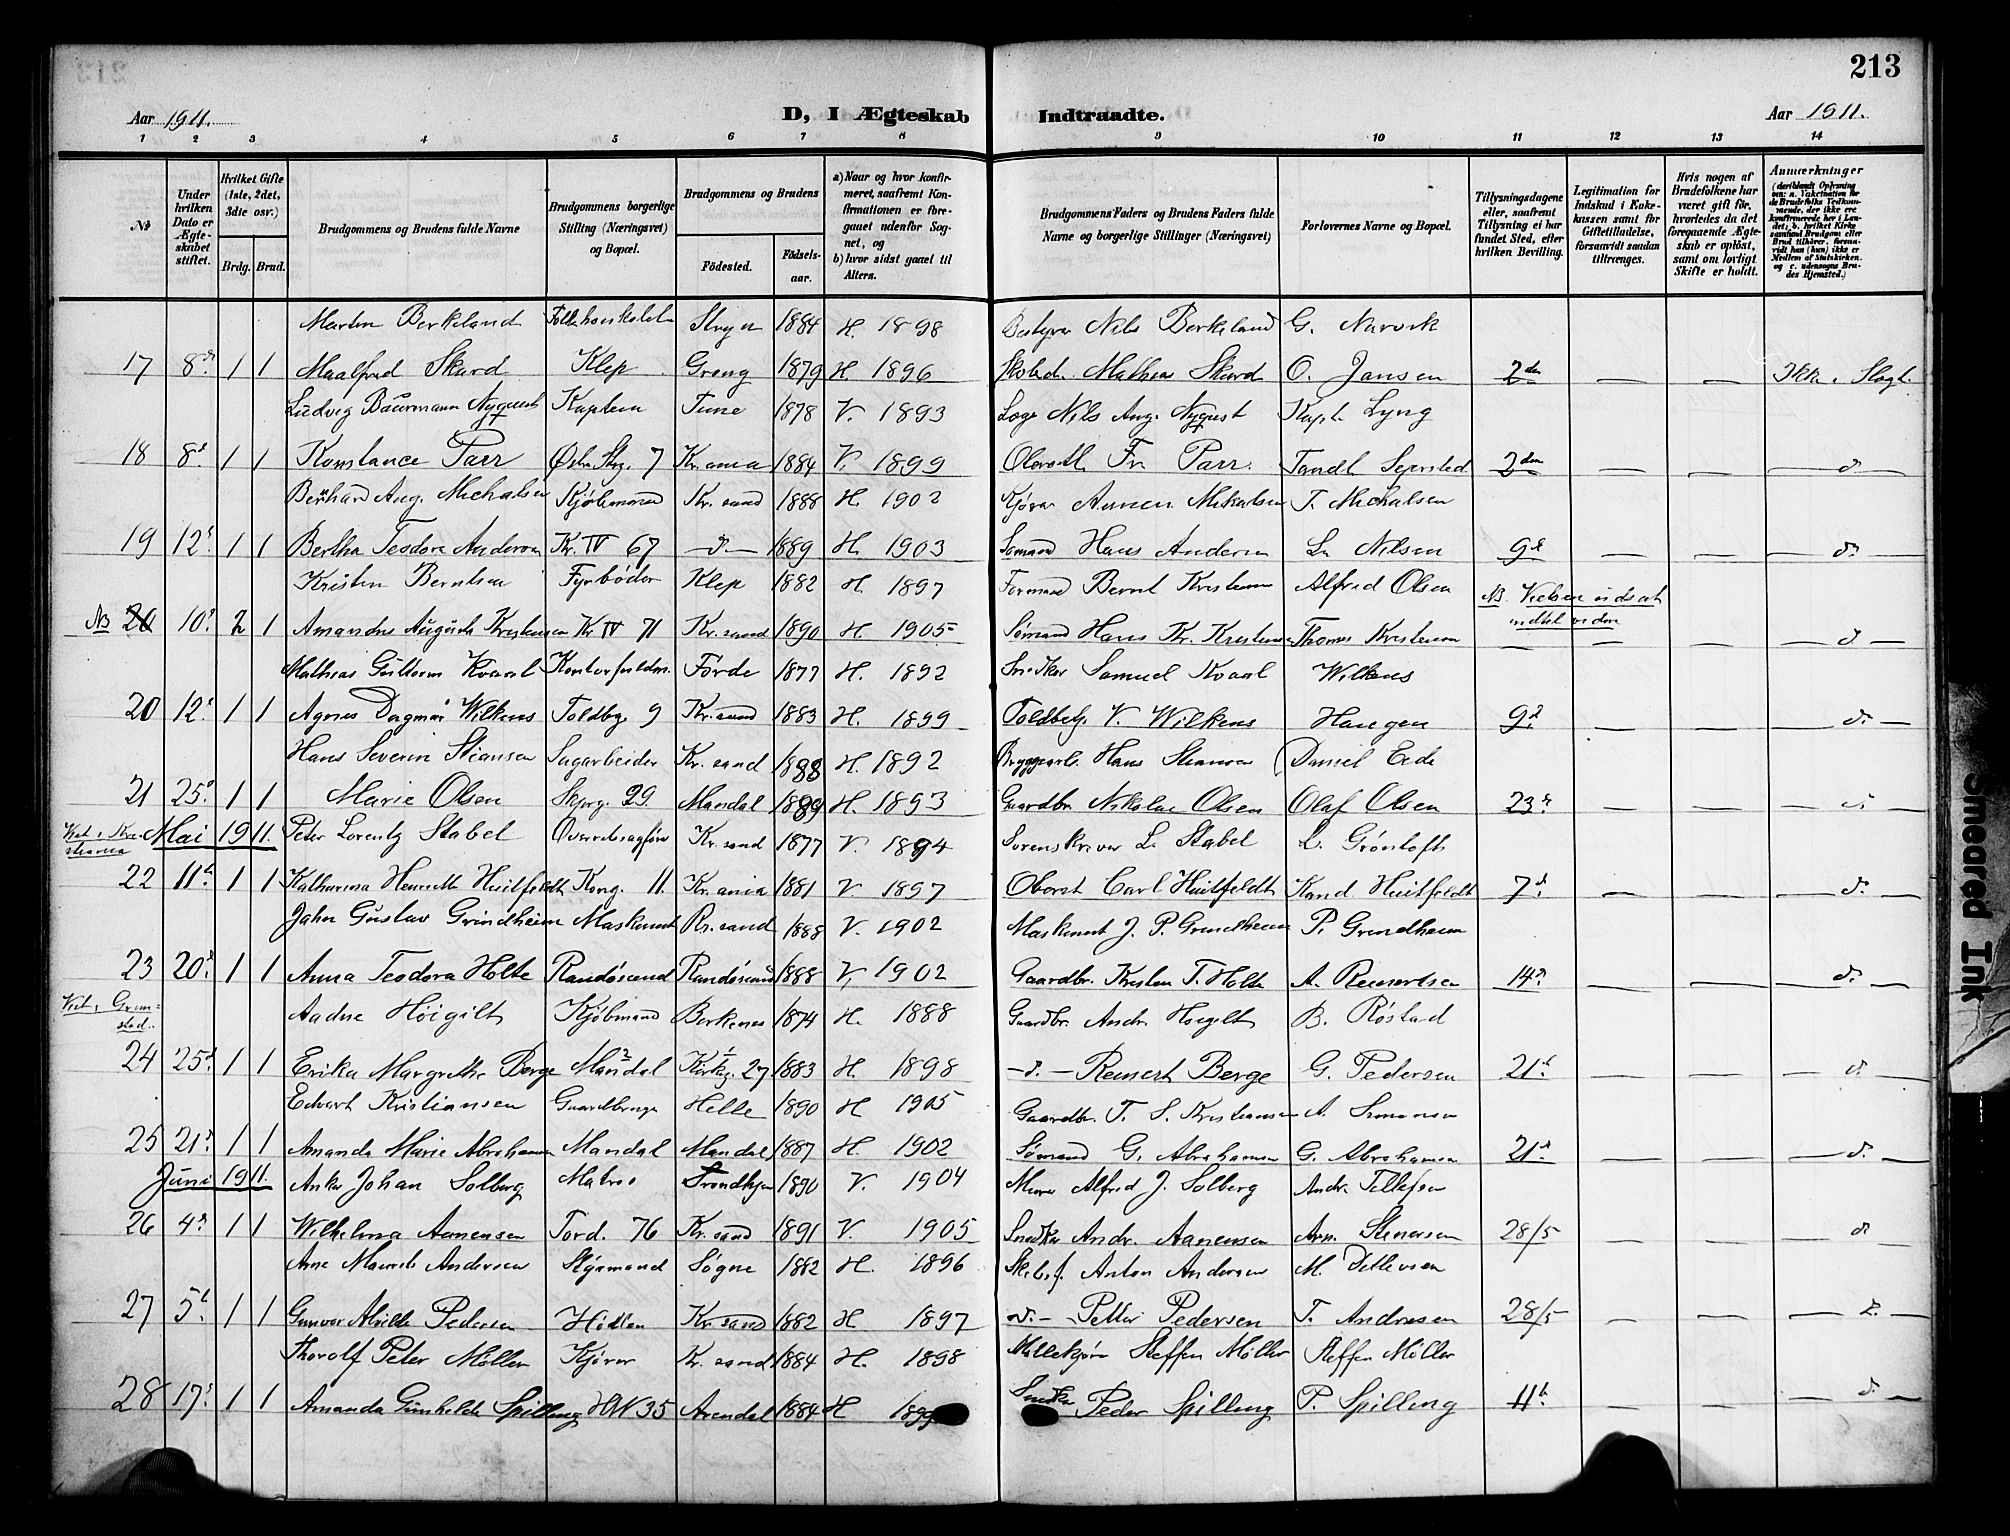 213
Aar 1911.
D, I Ægteskab Indtraadte.
Aar 1911.
1 2 3 4 5 6 7 8 9 10 11 12 13 14
№
Under hvilken Dato er Ægteskabet stiftet.
Hvilket Gifte (1ste, 2det, 3die osv.)
Brdg. Brud.
Brudgommens og Brudens fulde Navne
Brudgommens borgerlige Stilling (Næringsvei) og Bopæl.
Brudgommens og Brudens
Fødested.
Fødselsaar.
a) Naar og hvor konfirmeret, saafremt Konfirmationen er foregaaet udenfor Sognet, og
b) hvor sidst gaaet til Alters.
Brudgommens Faders og Brudens Faders fulde Navne og borgerlige Stillinger (Næringsvei)
Forlovernes Navne og Bopæl.
Tillysningsdagene eller, saafremt Tillysning ei har fundet Sted, efter hvilken Bevilling.
Legitimation for Indskud i Enkekassen samt for Giftetilladelse, forsaavidt saadan tiltrænges.
Hvis nogen af Brudefolkene har været gift før, hvorledes da det foregaaende Ægteskab er opløst, samt om lovligt Skifte er holdt.
Anmærkninger
Martin Berkeland Stryn 1884 H. 1898 Bestyrer Nils Berkeland G. Narvik
17 8 1 1 Maalfrid Skard Klep Grong 1879 H. 1896 Mathias Skard O. Jansen 2den — — Ikke i Slægt.
Ludvig Baurmann Nyquist Kaptein Tune 1878 V. 1893 Nils Aug. Nyquist Kapt. Lyng
18 8 1 1 Konstance Parr Østre Strg. 7 Kr.ania 1884 V. 1899 Fr. Parr. 2den — — d.
Bernhard Aug. Michalsen Kjøbmand Kr. sand 1888 H. 1902 Aanen Mikalsen T. Michalsen
19 12 1 1 Bertha Teodora Andersen Kr. IV 67 —d.— 1889 H. 1903 Sømand Hans Andersen L. Nilsen 9de — — d.
Kristen Berntsen Fyrbøder Klep 1882 H 1897 Formand Bernt Kristensen Alfred Olsen NB. Vielsen udsat indtil videre
NB 20 10 2 1 Amanda Augusta Kristensen Kr IV 71 Kr.sand 1890 H 1905 Sømand Hans Kr. Kristensen Thomas Kristensen — — — d —
Mathias Guttorm Kvaal Kontorfuldm. Førde 1877 H. 1892 Snedker Samuel Kvaal Wilkens
20 12 1 1 Agnes Dagmar Wilkens Toldbg. 9 Kr.sand 1883 H. 1899 Toldbetj. V. Wilkens Haugen 9d — — d. —
Hans Severin Stiansen Sagarbeider Kr. sand 1888 H. 1892 Bryggearb. Hans Stiansen Daniel Eide
21 25 1 1 Marie Olsen Skprg. 29. Mandal 1889 H. 1893 Gaardbr. Nikolai Olsen Olaf Olsen 23d — — d. —
Viet i Kristiania Mai 1911. Peter Lorentz Stabel Overretssagfører Kr. sand 1877 V. 1894 Sorenskriver L. Stabel L. Grøntoft
22 11te 1 1 Katharina Henriette Huitfeldt Kong. 11. Kr.ania 1881 V. 1897 Oberst Carl Huitfeldt Kand Huitfeldt 7d — — d.
Jahn Gustav Grindheim Maskinist Kr. sand 1888 V. 1902 Maskinist J. P. Grindheim P. Grindheim
23 20 1 1 Anna Teodora Holte Randøsund Randøsund 1888 V. 1902 Gaardbr. Kristen T. Holte A. Reinertsen 14d — — d.
Viet i Grimstad. Aadne Høigilt Kjøbmand Birkenes 1874 H. 1888 Gaardbr. Andr. Høigilt B. Røstad
24 25 1 1 Erika Margrethe Berge Mandal Kirkeg. 27 1883 H. 1898 —d.— Reinert Berge G. Pedersen 21d — — d.
Edvart Kristiansen Gaardbruger Helle 1890 H 1905 Gaardbr. T. S. Kristiansen A. Simonsen
25 21 1 1 Amanda Marie Abrahamsen Mandal Mandal 1887 H. 1902 Sømand G. Abrahamsen G. Abrahamsen 21d — — d. —
Juni 1911. Anker Johan Solberg Matros Trondhjem 1890 V. 1904 Murer Alfred J. Solberg Andr. Tellefsen
26 4 1 1 Wilhelma Aanensen Tord. 76 Kr. sand 1891 V. 1905 Snedker Andr. Aanensen Arn. Stenersen 28/5 — — d
Arne Andersen Styrmand Søgne 1882 H. 1896 Anton Andersen M. Ditlevsen
27 5te 1 1 Gunvor Alvilde Pedersen Hødten Kr. sand 1882 H 1897 —d.— Petter Pedersen T. Andresen 28/5 — — d.
Thorolf Peter Møller Kjører Kr. sand 1884 H. 1898 Steffen Møller Steffen Møller
28 17 1 1 Amanda Gunhilda Spilling 35 Arendal 1884 H 1899 Snedker Peder Spilling P. Spilling 11te — — d. —
Smeared Ink